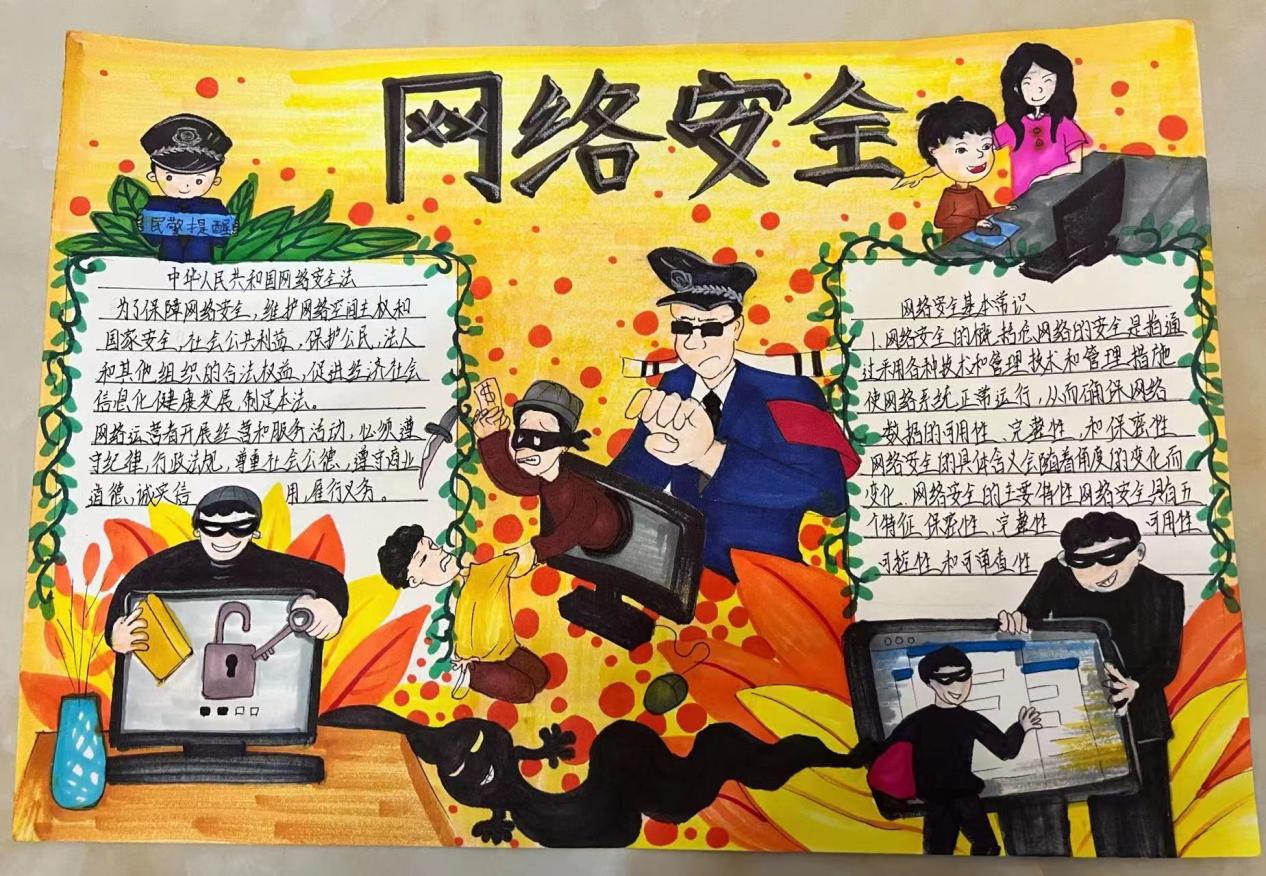 网络安全
民警提醒
中华人民共和国网络安全法
为了保障网络安全，维护网络空间主权和
国家安全、社会公共利益，保护公民、法人
和其他组织的合法权益，促进经济社会
信息化健康发展，制定本法。
网络运营者开展经营和服务活动，必须遵
守纪律，行政法规，尊重社会公德，遵守商业
道德、诚实信用，履行义务。
网络安全基本常识
1、网络安全的概括危网络的安全是指通
过采用各种技术和管理技术和管理措施
使网络系统正常运行，从而确保网络
数据的可用性、完整性、和保密性
网络安全的具体含义会随着角度的变化而
变化、网络安全的主要特性网络安全具有五
个特征、保密性、完整性 可用性
可控性和可审查性